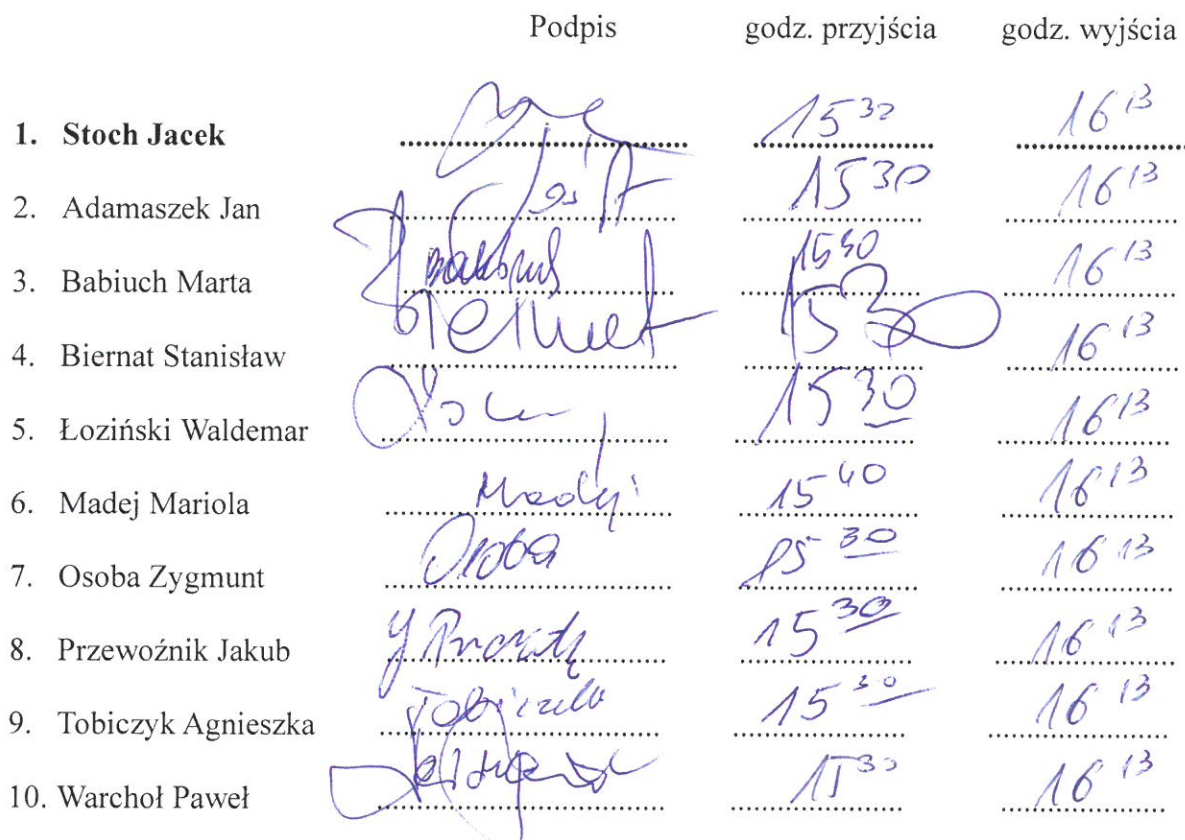 Podpis godz. przyjścia godz. wyjścia
1. Stoch Jacek 15 30 16 13
2. Adamaszek Jan 15 30 16 13
3. Babiuch Marta 16 13
4. Biernat Stanisław 15 30 16 13
5. Łoziński Waldemar 15 30 16 13
6. Madej Mariola Madej 15 40 16 13
7. Osoba Zygmunt Osoba 15 30 16 13
8. Przewoźnik Jakub 15 30 16 13
9. Tobiczyk Agnieszka 15 30 16 13
10. Warchoł Paweł 15 30 16 13